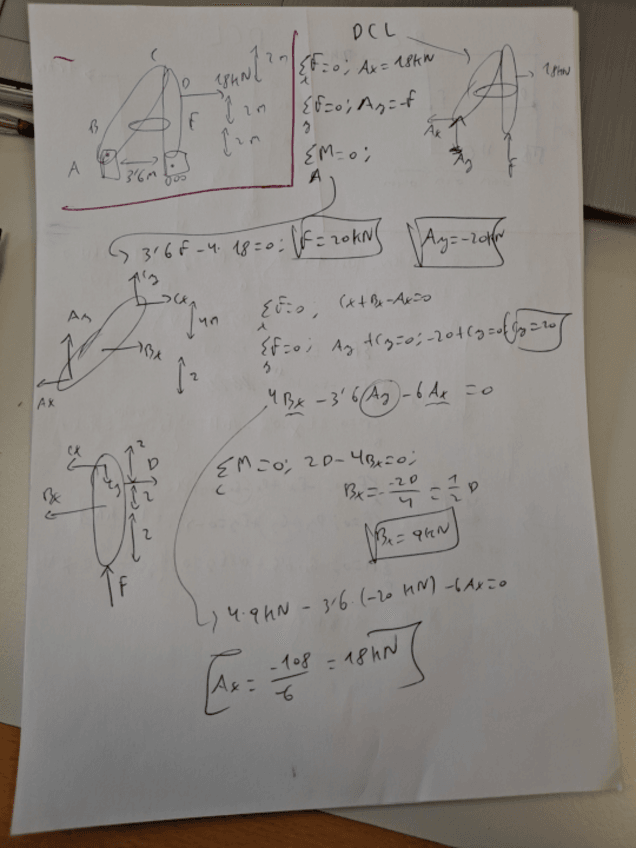 DCL
C
2m
D
18KN
2m
B
F
2m
A
3'6M
ΣF=0; Ax=18KN
x
ΣF=0; Ay=-F
y
ΣM=0;
A
18KN
Ax
Ay
F
3'6 F-4·18=0; F=20KN
Ay=-20KN
Cy
Cx
Ay
4m
Bx
2
Ax
ΣF=0, Cx+Bx-Ax=0
x
ΣF=0; Ay+Cy=0; -20+Cy=0 Cy=20
y
4Bx-3'6 Ay-6Ax=0
Cx
2
D
Cy
Bx
2
2
F
ΣM=0; 2D-4Bx=0;
C
Bx=-2D/4=1/2 D
Bx=9KN
4·9KN-3'6·(-20KN)-6Ax=0
Ax=-108/-6=18KN